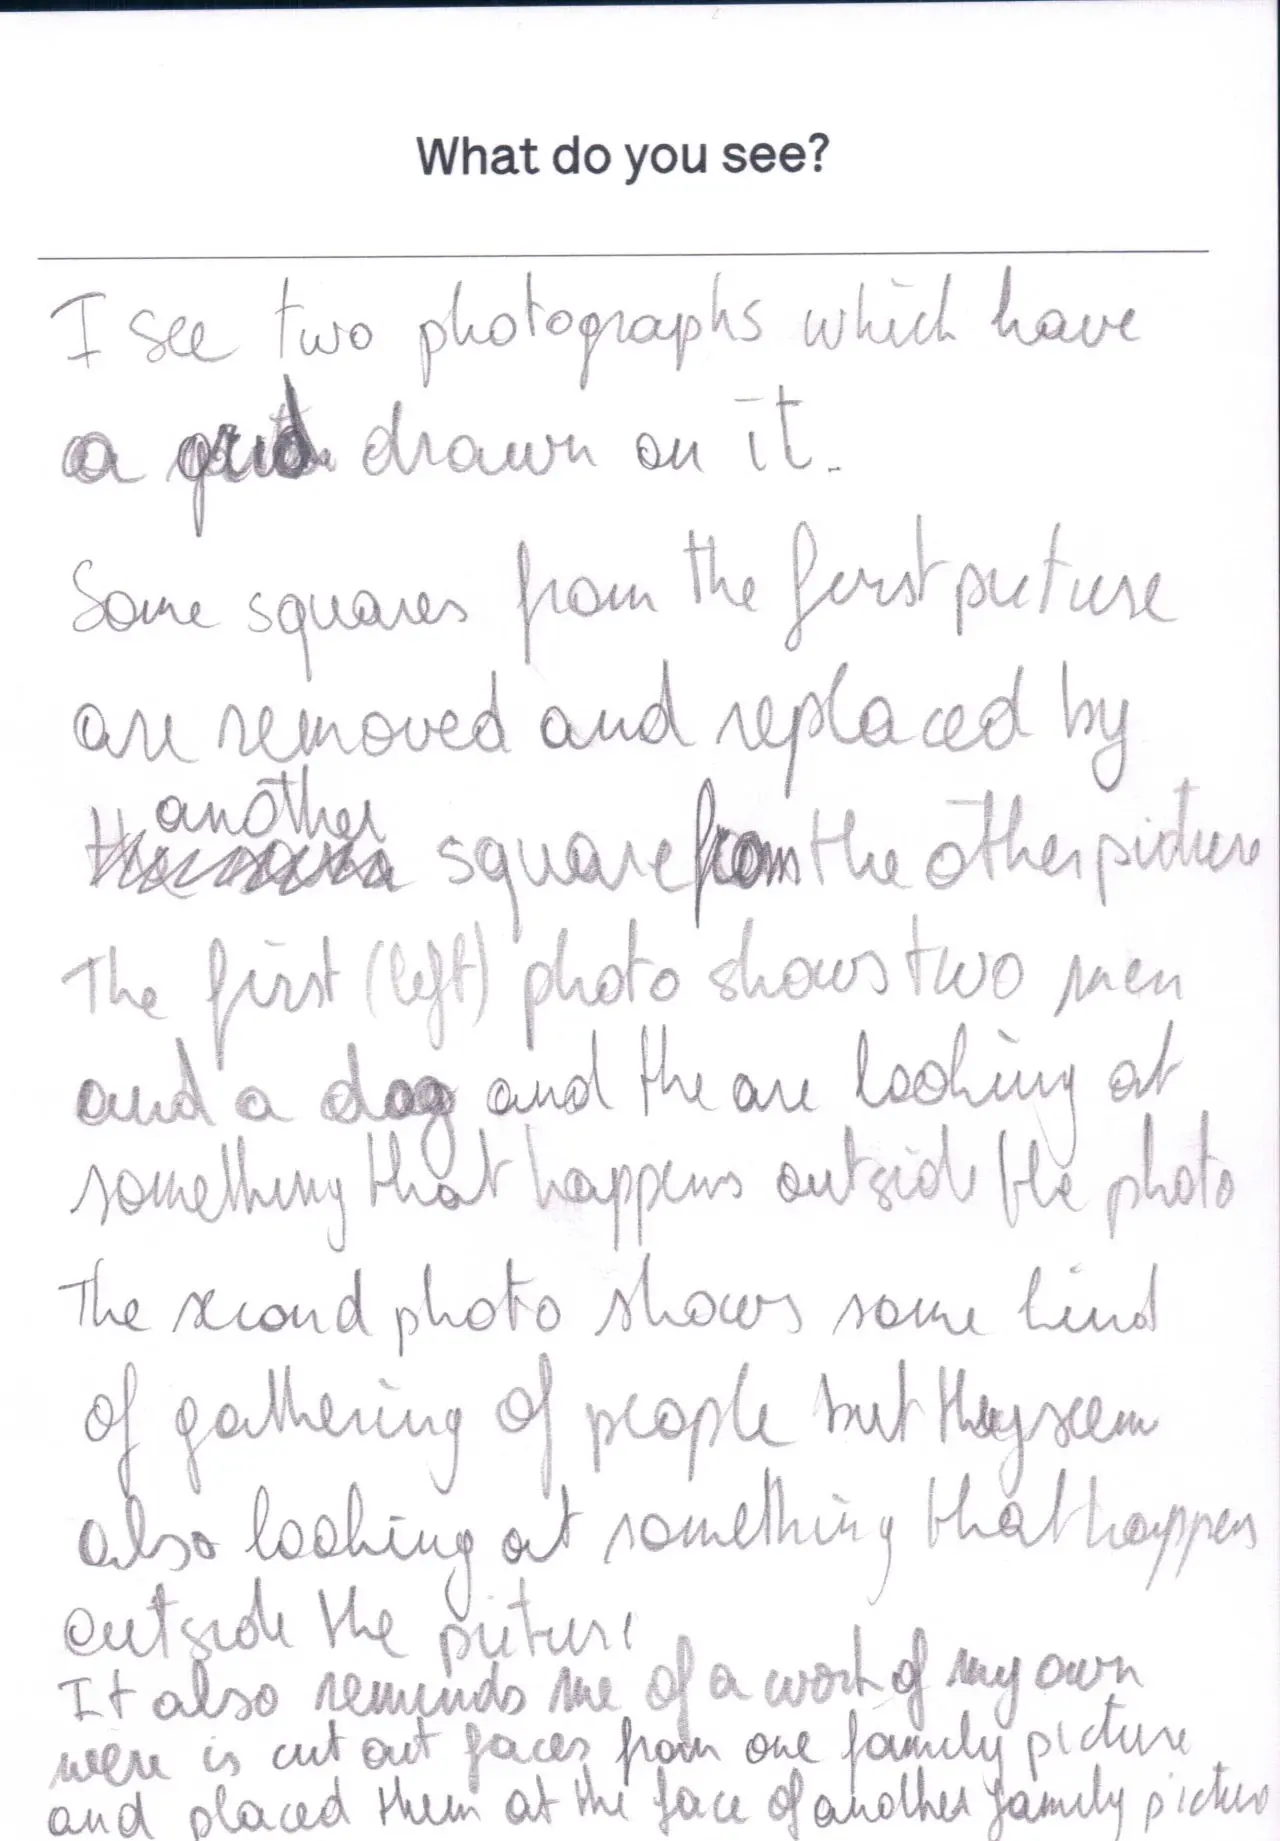 What do you see?
I see two photographs which have
a grid drawn on it.
Some squares from the first picture
are removed and replaced by
another
square from the other picture
The first (left) photo shows two men
and a dog and the are looking at
something that happens outside the photo
The second photo shows some kind
of gathering of people but they seem
also looking at something that happens
outside the picture
It also reminds me of a work of my own
were is cut out faces from one family picture
and placed them at the face of another family picture